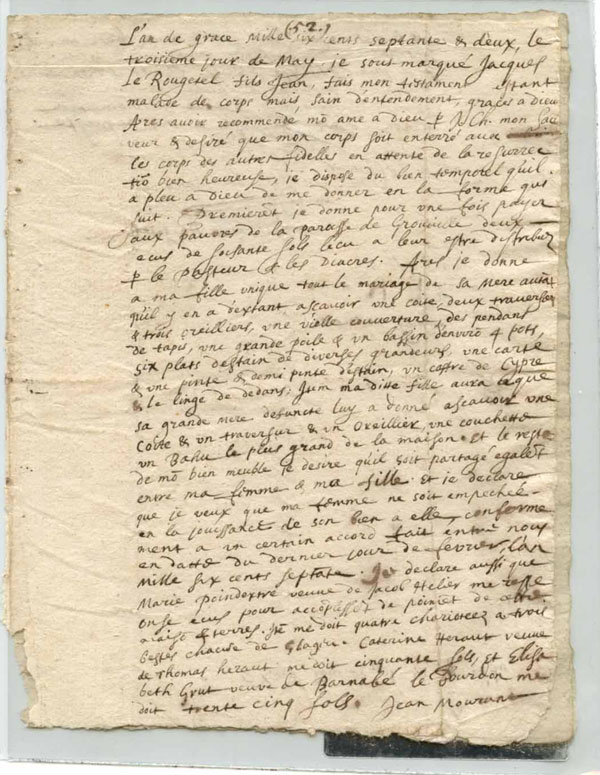 (52.)
L'an de grace Mille six cents septante & deux, le
troisieme jour de May, je sous marqué Jacques
le Rougetel fils Jean, fais mon testament estant
malade de corps mais sain dentendement, graces a Dieu
Apres avoir recommende mō ame a Dieu p N Ch. mon Sau
veur & desiré que mon corps soit enterré aux
les corps des autres fidelles en attente de la resurrec
tiō bien heureuse, je dispose du bien temporel quil
a pleu a Dieu de me donner en la forme qui
suit. Premieremt je donne pour une fois payer
aux pauvres de la paroisse de Grouville deux
ecus de soisante sols lecu a leur estre distribuez
p le Pasteur & les Diacres. Apres je donne
a ma fille unique tout le mariage de sa mere autāt
quil y en a d'extant, ascavoir une coite, deux traversiers
& trois oreilliers, une vielle couverture, des pendants
de tapis, une grande poile & un bassin denvirō 4 pots,
six plats destain de diverses grandeurs, une carte
& une pinte & demi pinte destain, un coffre de Cypre
& le linge de dedans; Item ma ditte fille aura ce que
sa grande mere defuncte luy a donné ascavoir une
Coite & un traversier & un Oreillier, une couchette
un Bahu le plus grand de la maison. et le reste
de mō bien meuble je desire quil soit partagé egalemt
entre ma femme & ma fille. et je declare
que je veux que ma femme ne soit empechée
en la jouissance de son bien a elle, conforme
ment a un certain accord fait entre nous
en datte du dernier jour de fevrier, l'an
Mille six cents septāte. Je declare aussi que
Marie Poindextre veuve de Jacob Helier me reste
onse ecus pour de
& terres. me doit quatre charioteez a trois
bestes chacune de Caterine Heraut veuve
de Thomas heraut me doit cinquante sols, et Elisa
beth Grut veuve de Barnabé le Bourdon me
doit trente cinq sols. Jean Mourant